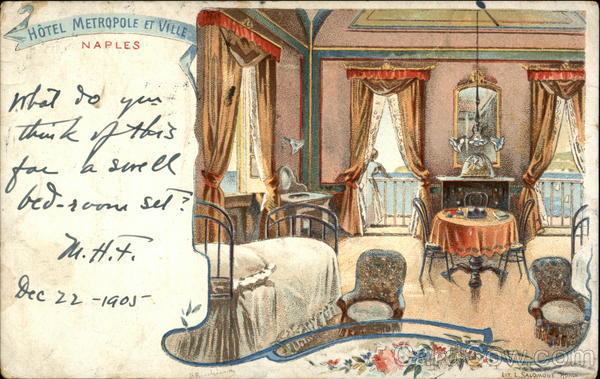 HÔTEL METROPOLE ET VILLE
NAPLES
What do you
think of this
for a swell
bed-room set?
M.H.F.
Dec 22 - 1905
CardCow.com
LIT. L. SALOMONE ROMA